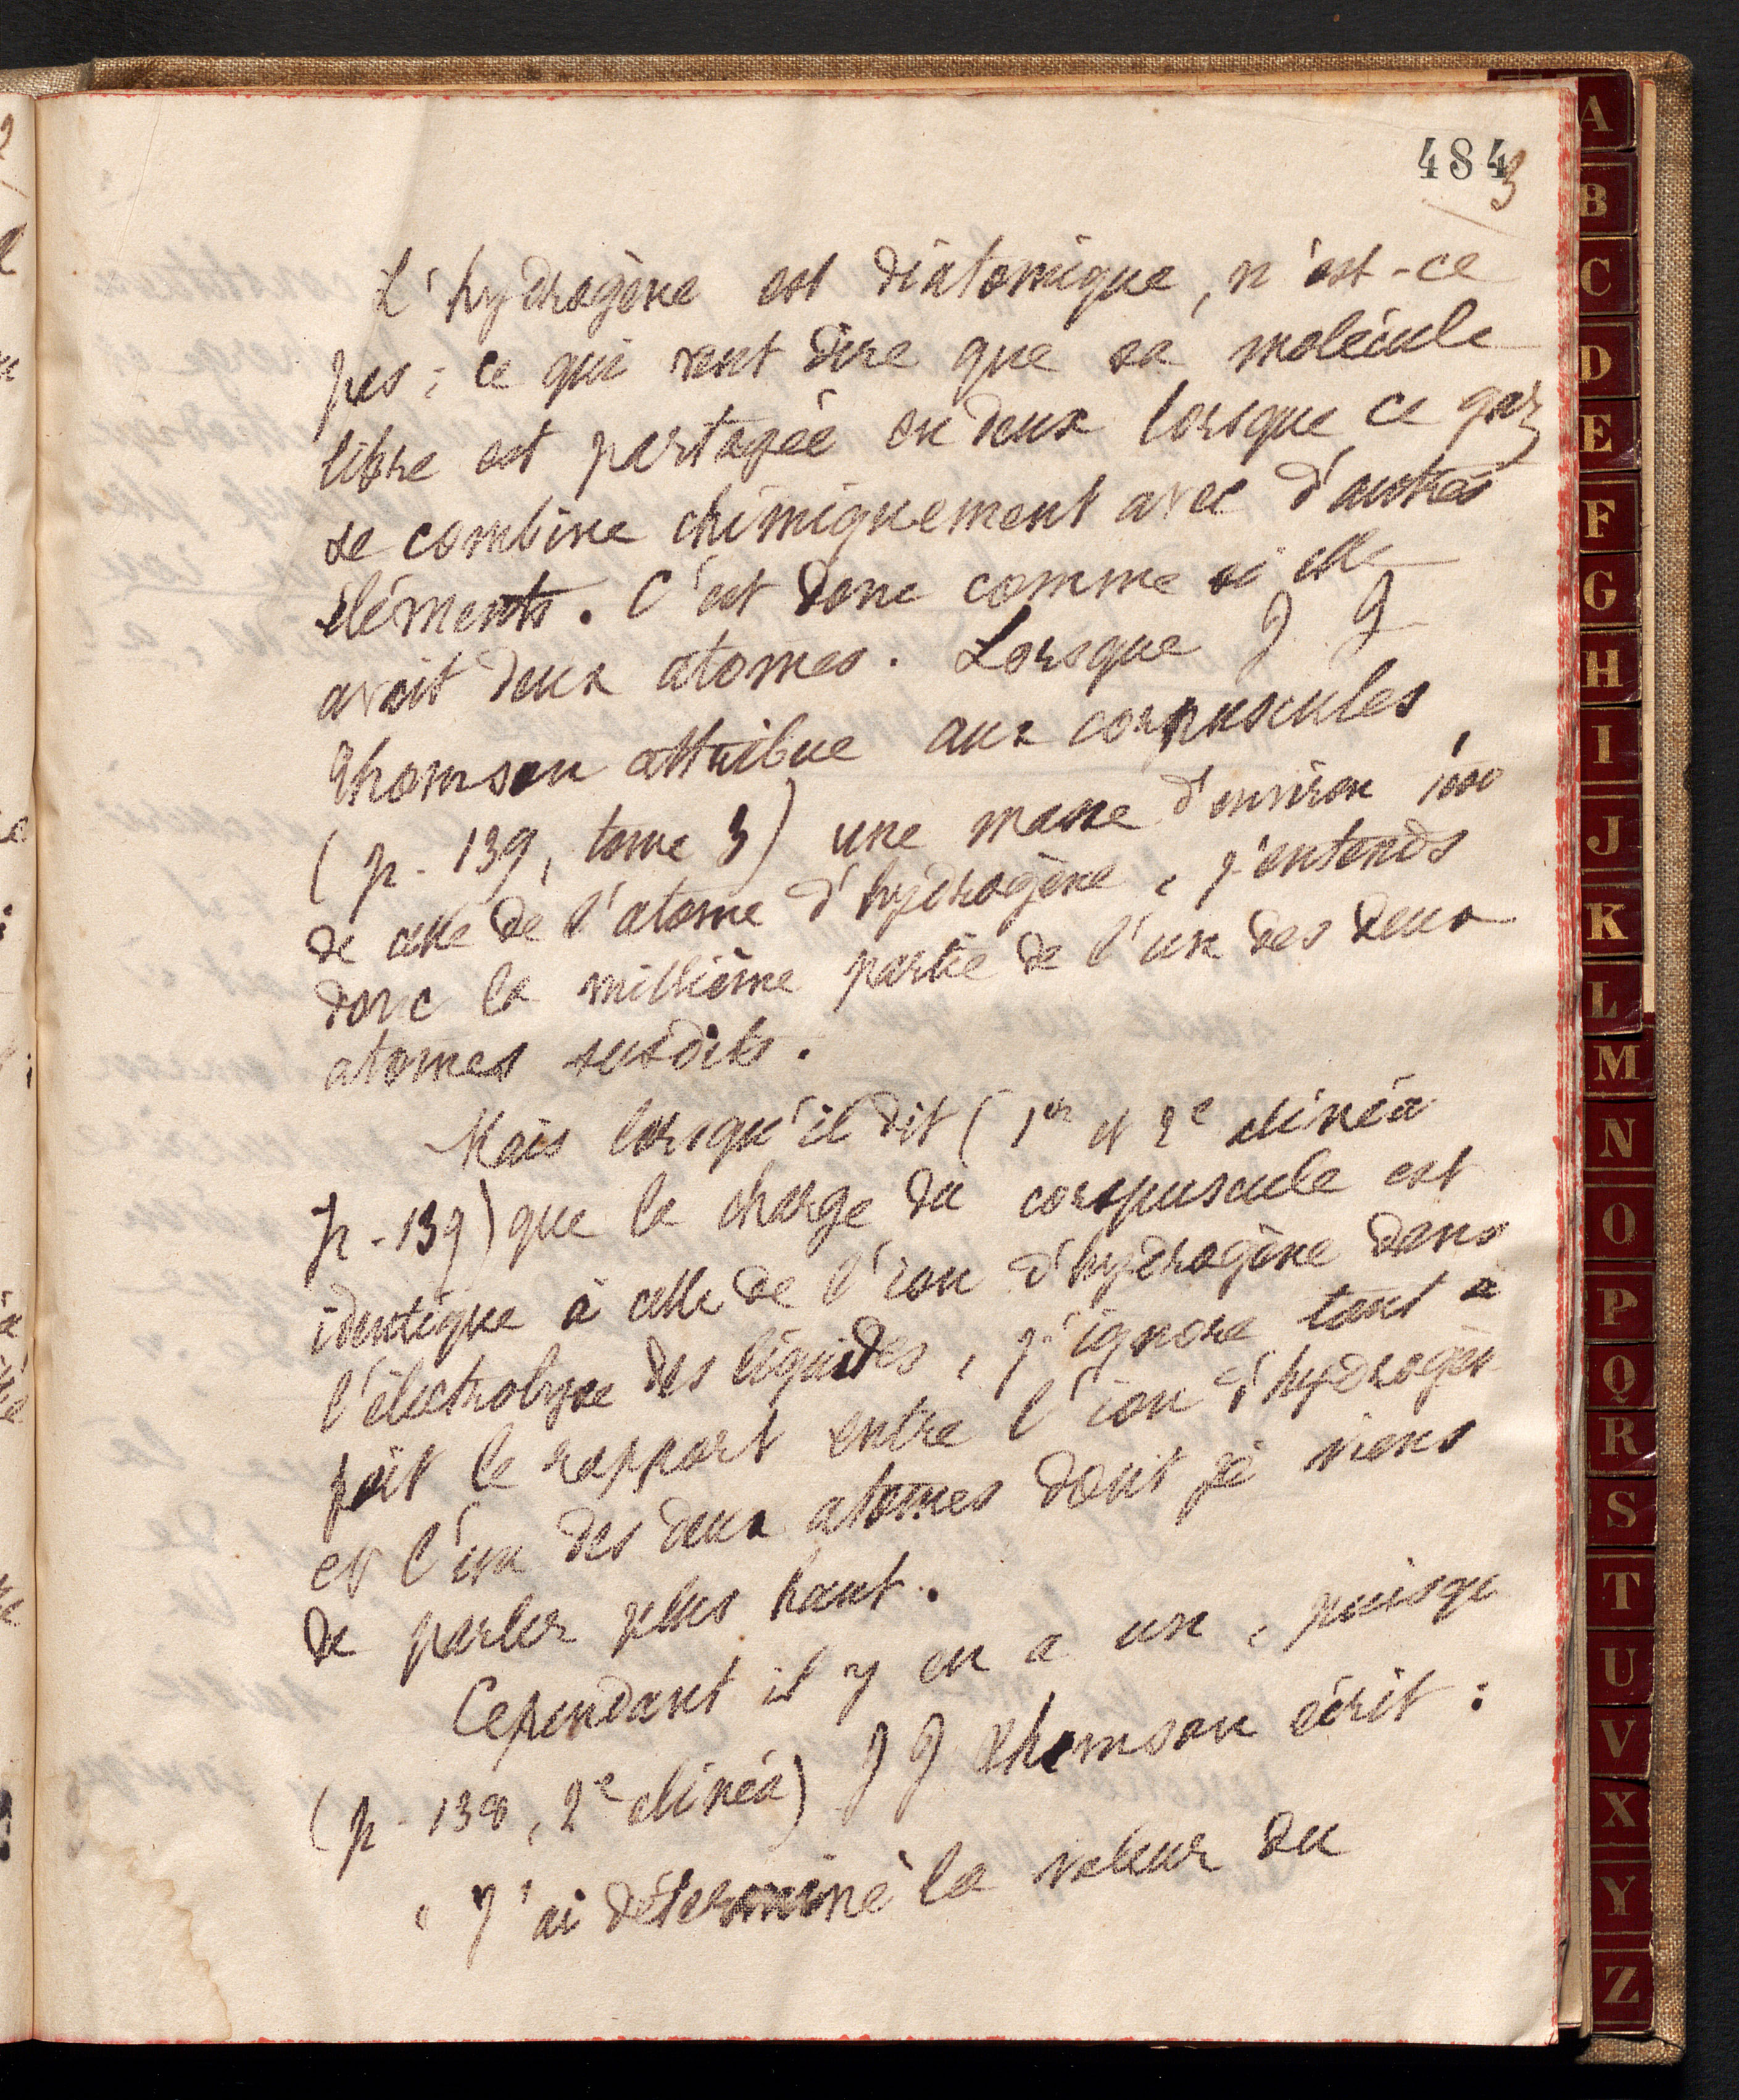 484
3
L'hydrogène est diatomique, n'est-ce
pas ; ce qui veut dire que sa molécule
libre est partagée en deux lorsque ce gaz
se combine chimiquement avec d'autres
éléments. C'est donc comme si elle
avait deux atomes. Lorsque J J
Thomson attribue aux corpuscules
(p. 139, tome 3) une masse d'environ 1/1000
de celle de l'atome d'hydrogène, j'entends
donc la millième partie de l'un des deux
atomes susdits.
Mais lorsqu'il dit (1er et 2e alinéa
p. 139) que la charge du corpuscule est
identique à celle de l'ion d'hydrogène dans
l'électrolyse des liquides, j'ignore tout à
fait le rapport entre l'ion d'hydrogèn
et l'un des deux atomes dont je viens
de parler plus haut.
Cependant il y en a un, puisqu
(p. 138, 2e alinéa) J J Thomson écrit :
" J'ai déterminé la valeur du
A
B
C
D
E
F
G
H
I
J
K
L
M
N
O
P
Q
R
S
T
U
V
X
Y
Z